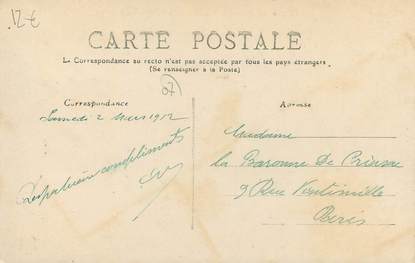 12€
CARTE POSTALE
La Correspondance au recto n'est pas acceptée par tous les pays étrangers
(Se renseigner à la Poste)
07
Correspondance
Samedi 2 Mars 1912
compliments
Adresse
Madame
La Baronne De
9 Rue Vintimille
Paris